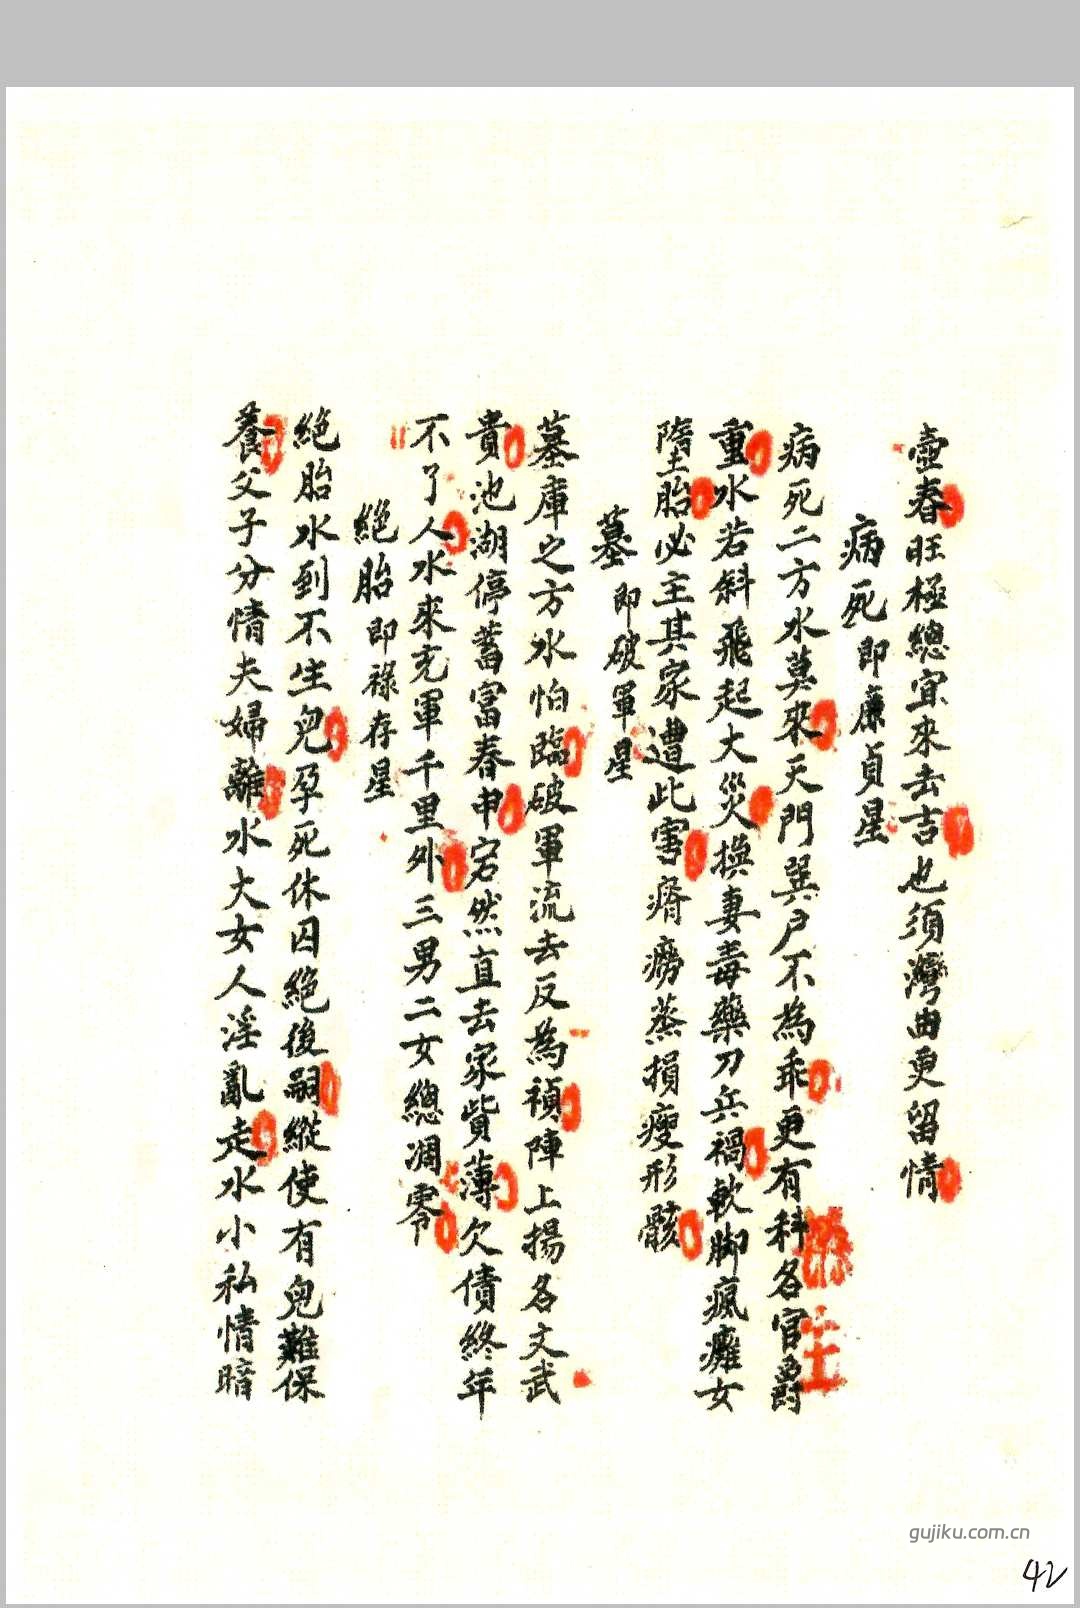 壺春旺極總宜來去吉也須灣曲更留情
病死即廉貞星
病死二方水莫來天門巽戶不為乖更有科各官爵
重水若斜飛起大災換妻毒藥刀兵禍軟脚瘋癱女
墮胎必主其家遭此害瘠癆蒸損瘦形骸
墓即破軍星
墓庫之方水怕臨破軍流去反為禎陣上揚各文武
貴池湖停蓄富春申宕然直去家貲薄欠債終年
不了人水來充軍千里外三男二女總凋零
絕胎即祿存星
絕胎水到不生兒孕死休囚絕後嗣縱使有兒難保
養父子分情夫婦離水大女人淫亂走水小私情暗
gujiku.com.cn
42